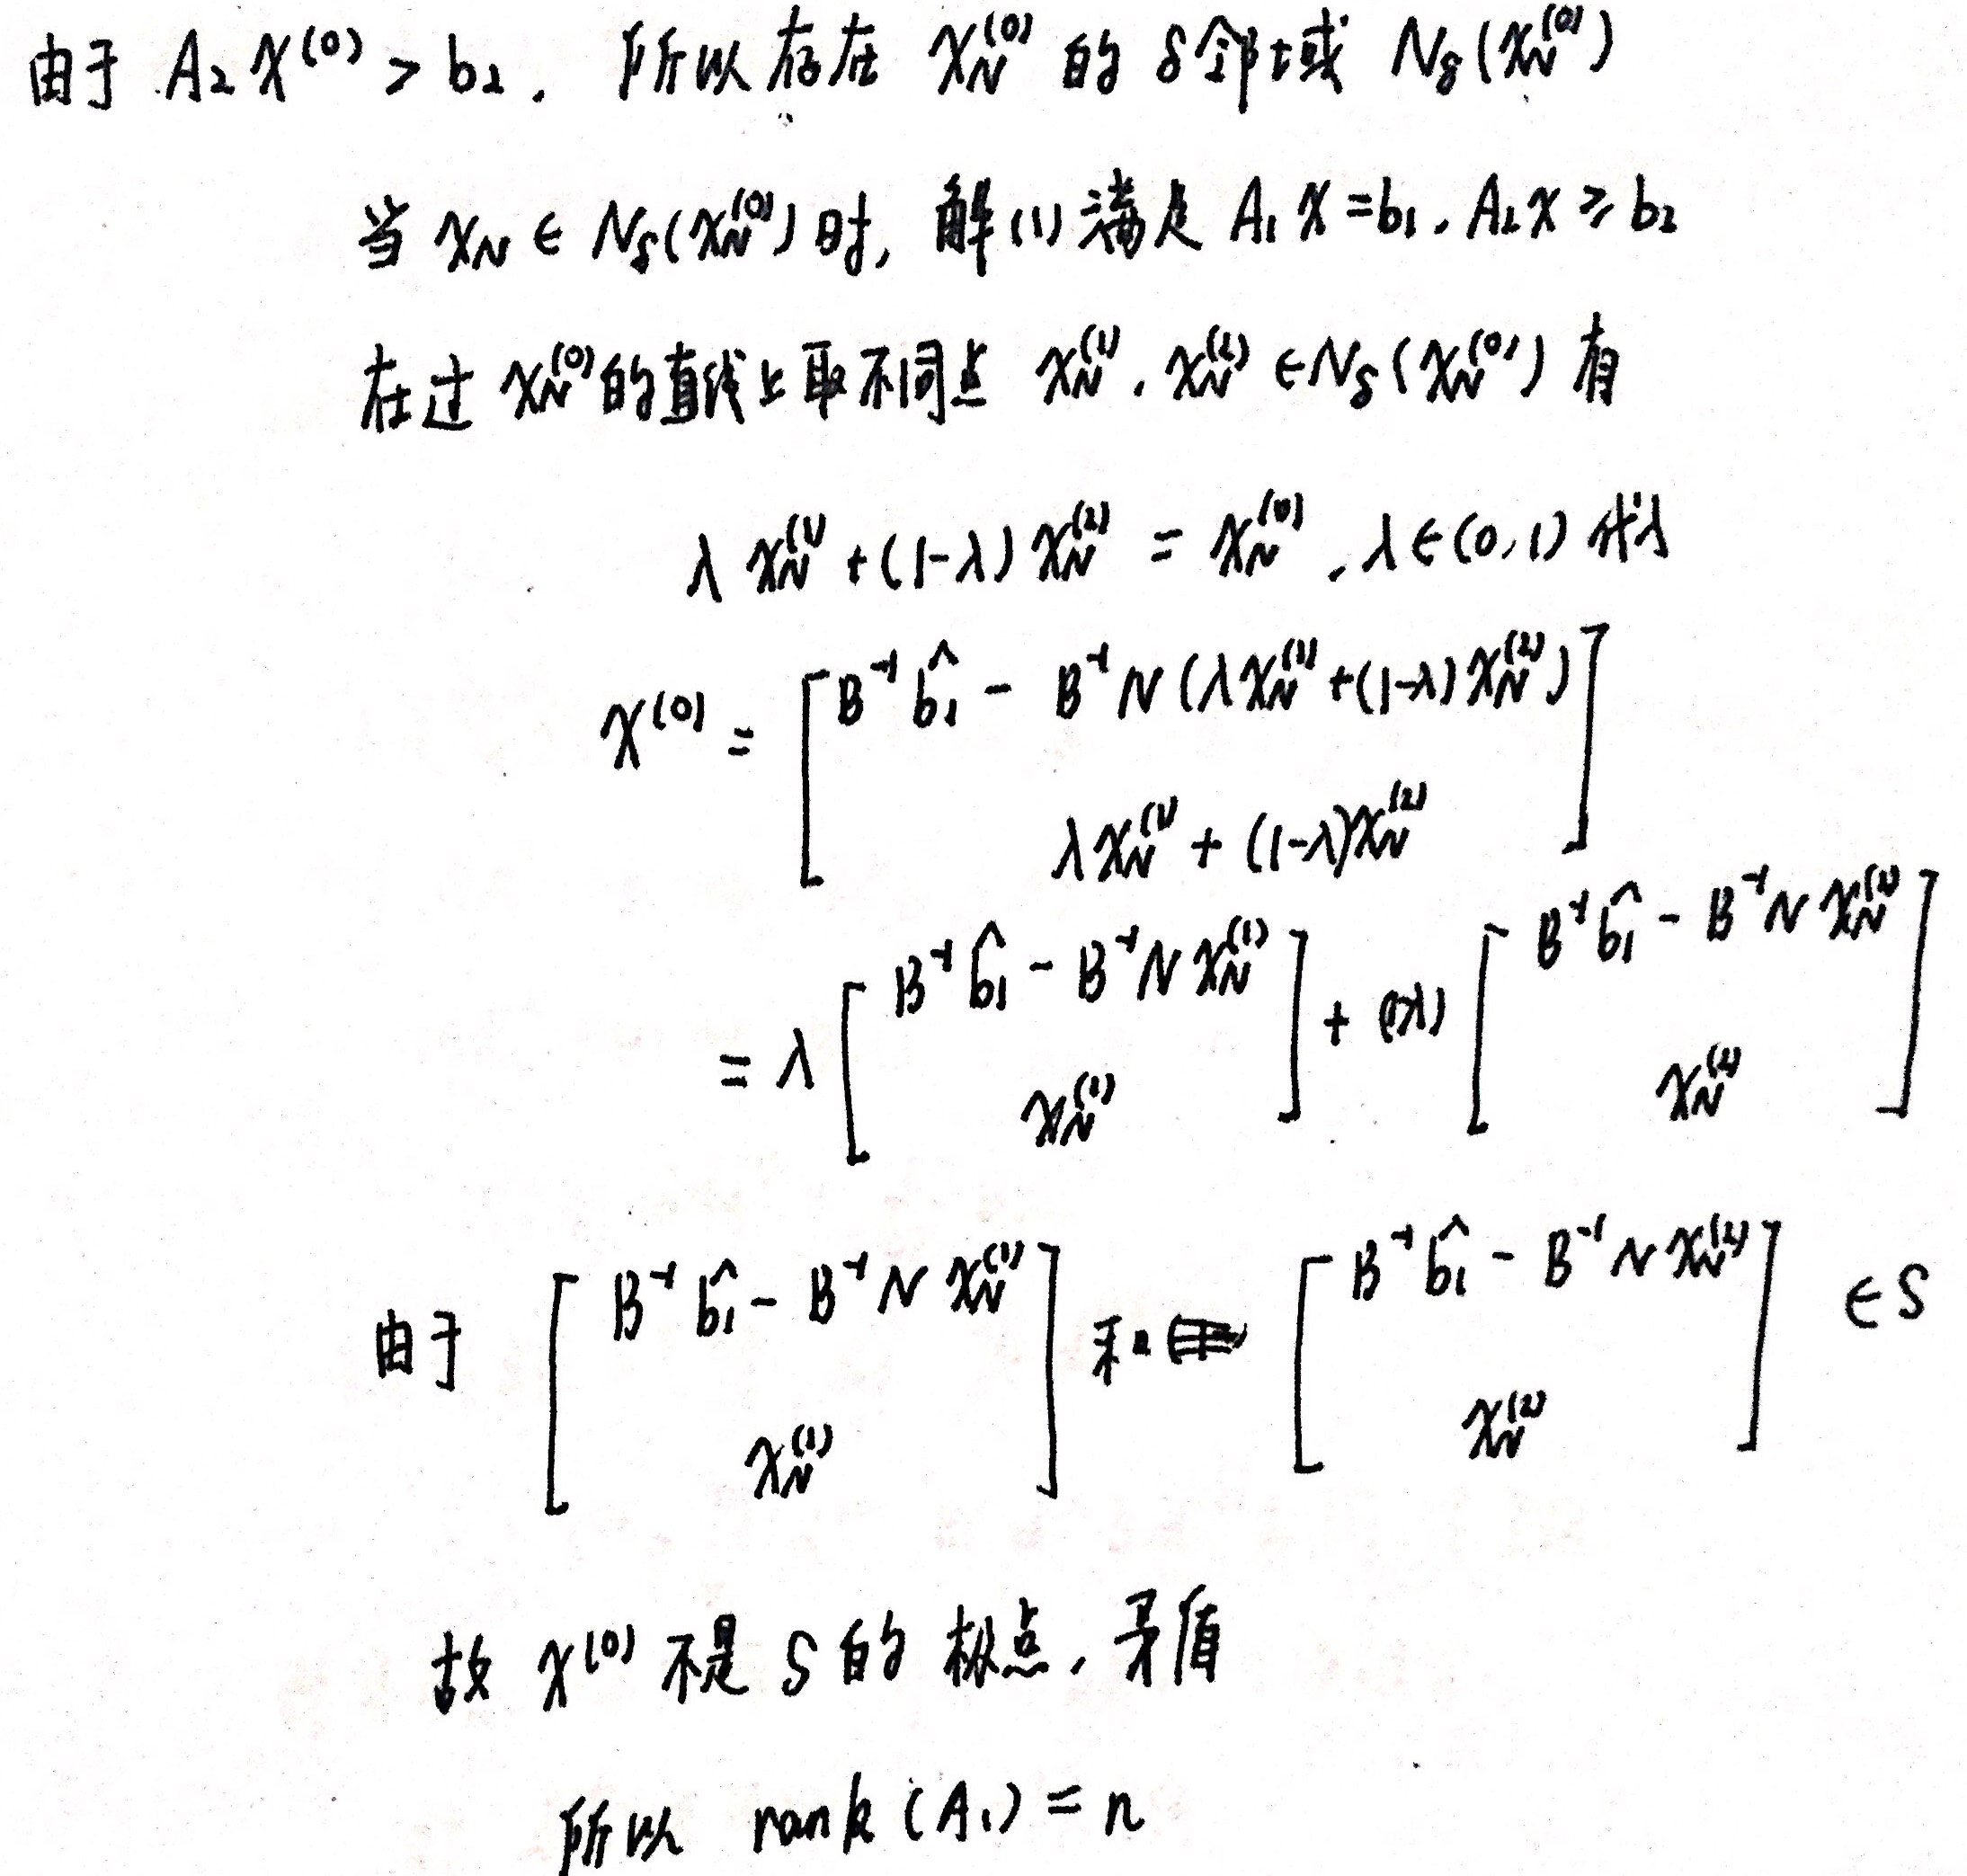 由于 A₂x⁽⁰⁾ > b₂, 所以存在 x_N⁽⁰⁾ 的 δ邻域 N_δ(x_N⁽⁰⁾)
当 x_N ∈ N_δ(x_N⁽⁰⁾) 时, 解(1)满足 A₁x = b₁, A₂x ≥ b₂
在过 x_N⁽⁰⁾ 的直线上取不同点 x_N⁽¹⁾, x_N⁽²⁾ ∈ N_δ(x_N⁽⁰⁾) 有
λx_N⁽¹⁾ + (1-λ)x_N⁽²⁾ = x_N⁽⁰⁾, λ ∈ (0,1) 代入
x⁽⁰⁾ = [ B⁻¹b̂₁ - B⁻¹N(λx_N⁽¹⁾ + (1-λ)x_N⁽²⁾)
λx_N⁽¹⁾ + (1-λ)x_N⁽²⁾ ]
= λ [ B⁻¹b̂₁ - B⁻¹N x_N⁽¹⁾ ; x_N⁽¹⁾ ] + (1-λ) [ B⁻¹b̂₁ - B⁻¹N x_N⁽²⁾ ; x_N⁽²⁾ ]
由于 [ B⁻¹b̂₁ - B⁻¹N x_N⁽¹⁾ ; x_N⁽¹⁾ ] 和 [ B⁻¹b̂₁ - B⁻¹N x_N⁽²⁾ ; x_N⁽²⁾ ] ∈ S
故 x⁽⁰⁾ 不是 S 的极点, 矛盾
所以 rank(A₁) = n